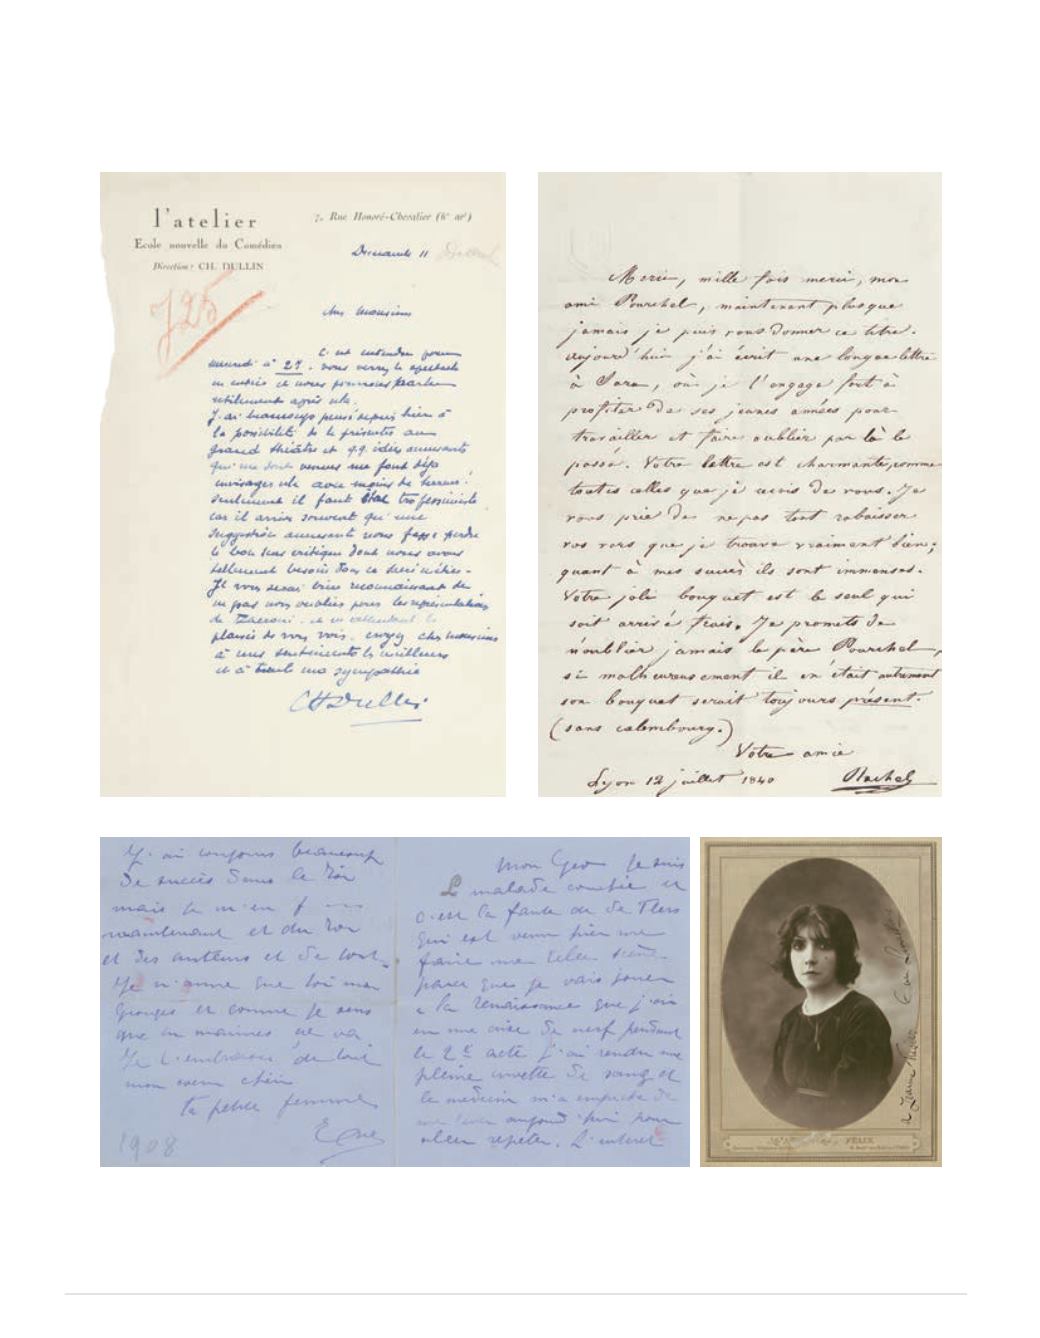 l'atelier
Ecole nouvelle du Comédien
Direction : CH. DULLIN
7, Rue Honoré-Chevalier (6e arr)
Dimanche 11
725
Cher Monsieur
C'est entendu pour
mercredi à 21. vous verrez le spectacle
en entier et nous pourrons parler
utilement après cela.
J'ai beaucoup pensé depuis hier à
la possibilité de le présenter au
grand théâtre et q.q. idées amusantes
qui me sont venues me font déjà
envisager cela avec moins de terreur!
Seulement il faut être très pessimiste
car il arrive souvent qu'une
suggestion amusante nous fasse perdre
le bon sens critique dont nous avons
tellement besoin dans ce sacré métier.
Je vous serai bien reconnaissant de
ne pas nous oublier pour les représentations
de Zacconi. et en attendant le
plaisir de vous voir. croyez cher monsieur
à mes sentiments les meilleurs
et à toute ma sympathie
Ch Dullin
Merci, mille fois merci, mon
ami Pourchel, maintenant plus que
jamais je puis vous donner ce titre.
aujourd'hui j'ai écrit une longue lettre
à Sara, où je l'engage fort à
profiter de ses jeunes années pour
travailler et faire oublier par là le
passé. Votre lettre est charmante, comme
toutes celles que je reçois de vous. Je
vous prie de ne pas tant rabaisser
vos vers que je trouve vraiment bien;
quant à mes succès ils sont immenses.
Votre joli bouquet est le seul qui
soit arrivé frais. Je promets de
n'oublier jamais le père Pourchel,
si malheureusement il en était autrement
son bouquet serait toujours présent.
(sans calembourg.)
Votre amie
Lyon 12 juillet 1840
Rachel
J'ai toujours beaucoup
de succès dans le Roi
mais je m'en f
maintenant et du Roi
et des auteurs et de tout.
Je n'aime que toi mon
Georges et comme je sens
que
Je t'embrasse de tout
mon coeur chéri
ta petite femme
Eve
1908
Mon Geo Je suis
malade couchée et
c'est la faute de de Flers
qui est venu hier me
faire une telle scène
parce que je vais jouer
à la Renaissance que j'ai
eu une crise de nerf pendant
le 2e acte j'ai rendu une
pleine cuvette de sang et
le médecin m'a empêchée de
me lever aujourd'hui pour
aller répéter.
à Jeanne
FÉLIX